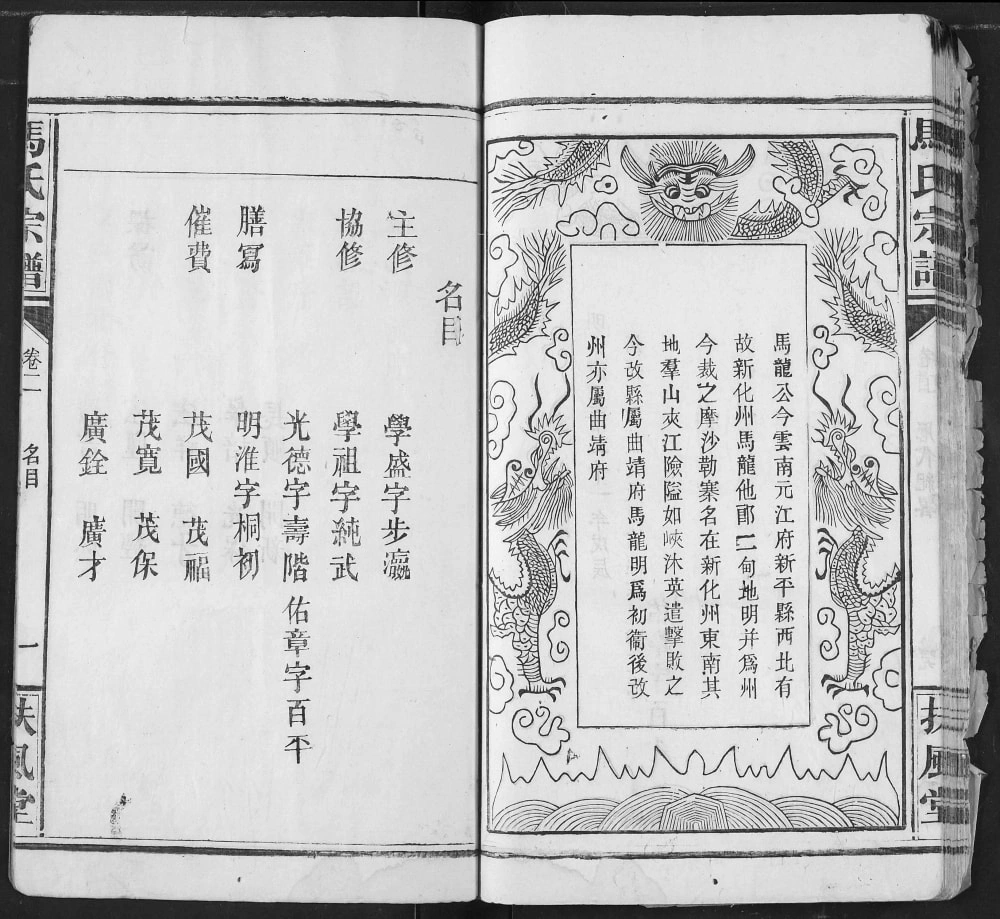 馬氏宗譜
扶風堂
馬龍公今雲南元江府新平縣西北有
故新化州馬龍他郎二甸地明并爲州
今裁之摩沙勒寨名在新化州東南其
地羣山夾江險隘如峽沐英遣擊敗之
今改縣屬曲靖府馬龍明爲初衞後改
州亦屬曲靖府
名目
主修 學盛字步瀛
協修 學祖字純武
光德字壽階 佑章字百平
膳寫 明淮字桐初
催費 茂國 茂福
茂寬 茂保
廣銓 廣才
馬氏宗譜
卷二
名目
一
扶風堂